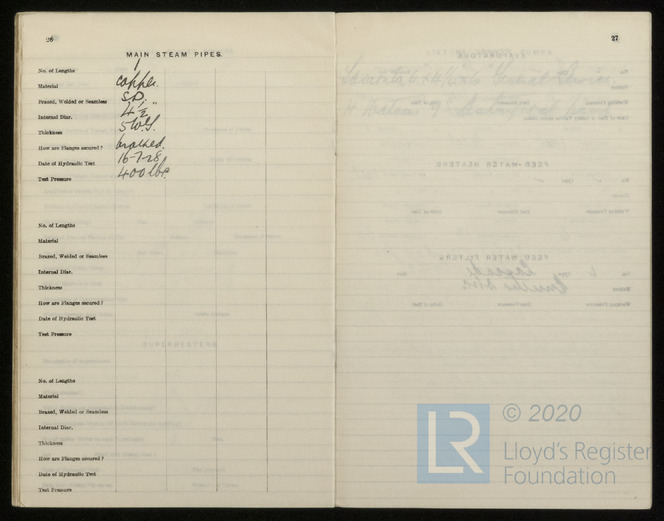 26
MAIN STEAM PIPES.
No. of Lengths 1
Material copper.
Brazed, Welded or Seamless S.D.
Internal Diar. 4 1/2"
Thickness 5 W.G.
How are Flanges secured? brazed.
Date of Hydraulic Test 16-7-28
Test Pressure 400 lbs.
No. of Lengths
Material
Brazed, Welded or Seamless
Internal Diar.
Thickness
How are Flanges secured?
Date of Hydraulic Test
Test Pressure
No. of Lengths
Material
Brazed, Welded or Seamless
Internal Diar.
Thickness
How are Flanges secured?
Date of Hydraulic Test
Test Pressure
27
LR
© 2020
Lloyd's Register
Foundation